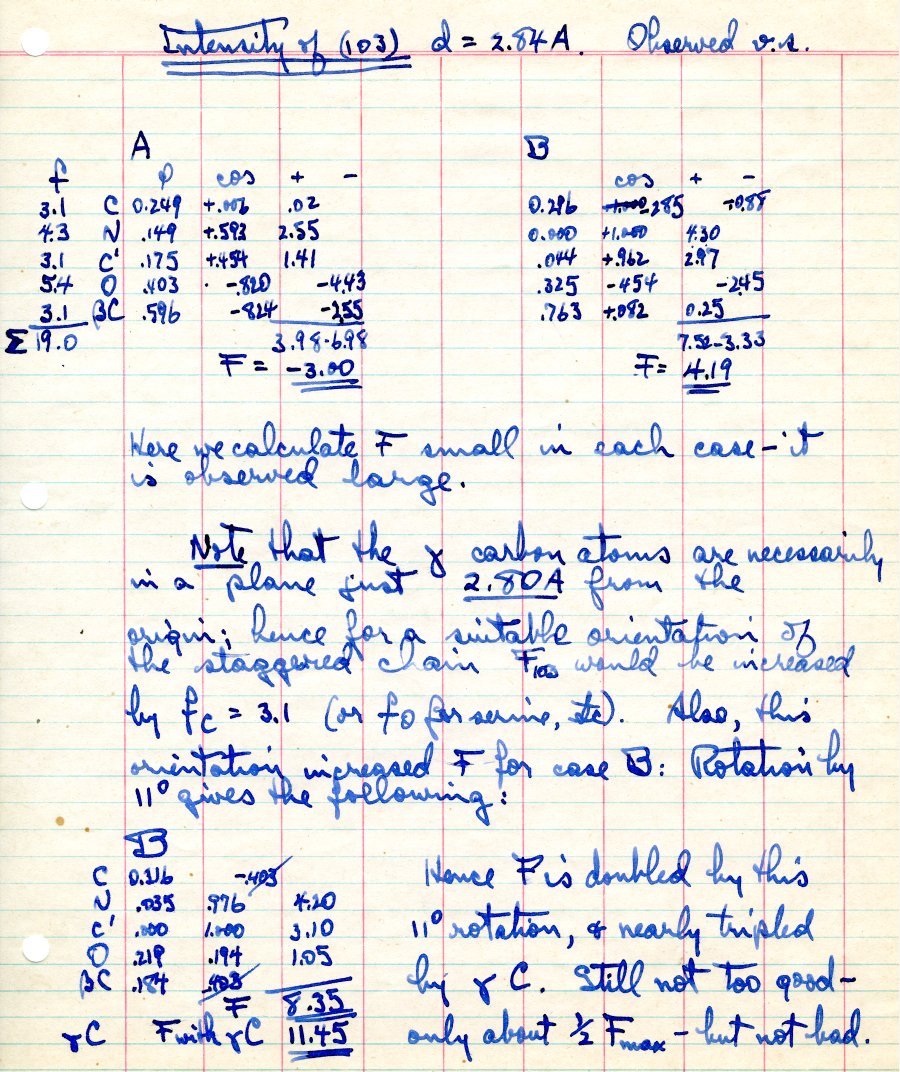 Intensity of (103) d = 2.84A. Observed v.s.
A B
f p cos + - cos + -
3.1 C 0.249 +.006 .02 0.296 -.285 -0.88
4.3 N .149 +.593 2.55 0.000 +1.000 4.30
3.1 C' .175 +.454 1.41 .044 +.962 2.97
5.4 O .403 -.820 -4.43 .325 -454 -2.45
3.1 βC .596 -824 -2.55 .763 +.082 0.25
Σ 19.0 3.98-6.98 7.52-3.33
F = -3.00 F= 4.19
Here we calculate F small in each case - it
is observed large.
Note that the γ carbon atoms are necessarily
in a plane just 2.80A from the
origin; hence for a suitable orientation of
the staggered chain would be increased
by fc = 3.1 (or fo for serine, etc). Also, this
orientation increased F for case B: Rotation by
11° gives the following:
B
C 0.316 -.403
N .035 .976 4.20
C' .000 1.000 3.10
O .219 .194 1.05
βC .184 .403
F 8.35
γC F with γC 11.45
Hence F is doubled by this
11° rotation, & nearly tripled
by γ C. Still not too good -
only about ½ Fmax - but not bad.